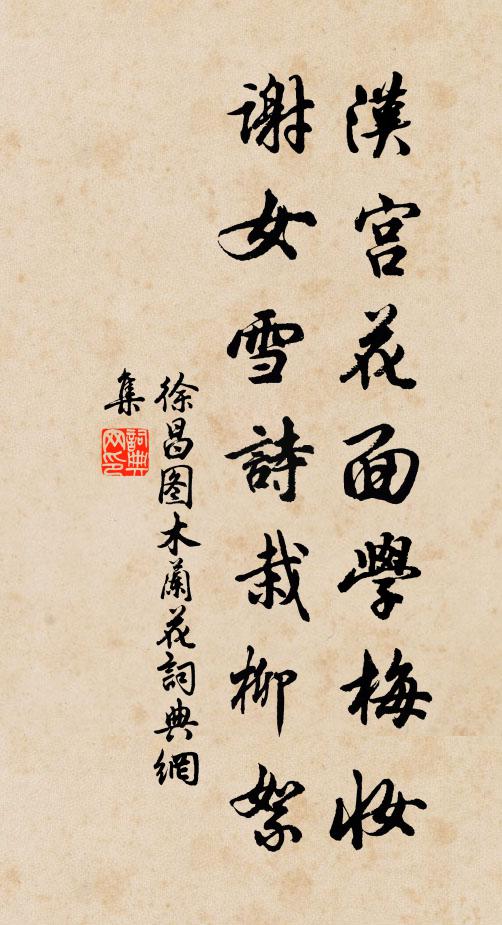 漢宮花面學梅妝
謝女雪詩栽柳絮
徐昌图木蘭花詞典網
集
詞典
网印